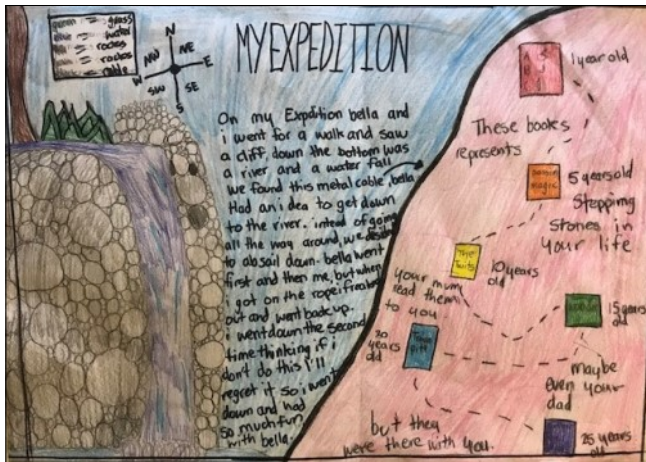 green = grass
= water
= rocks
= rocks
N
NW NE
W E
SW SE
S
MY EXPEDITION
On my Expdition bella and
i went for a walk and saw
a cliff, down the bottom was
a river and a water fall
we found this metal cable, bella
Had an idea to get down
to the river. intead of going
all the way around, we
to absail down. bella went
first and then me, but when
got on the rope i freaked
out and went back up.
i went down the second
time thinking if i
don't do this i'll
regret it so i went
down and had
so much fun
with bella.
1 year old
These books
represents
magic
5 years old
Stepping
stones in
your life
The
Twits
10 years
old
your mum
read them
to you
15 years
old
20
years
old
maybe
even your
dad
but they
were there with you.
25 years
old